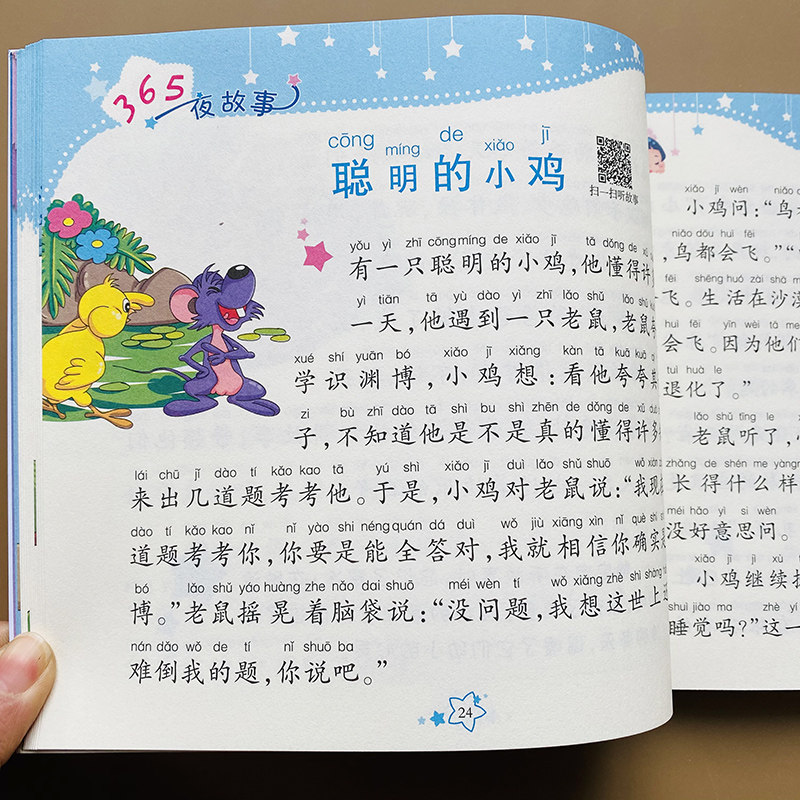 365
夜故事
cōng míng de xiǎo jī
聪明的小鸡
扫一扫听故事
yǒu yì zhī cōng míng de xiǎo jī tā dǒng de xǔ
有一只聪明的小鸡，他懂得许
yì tiān tā yù dào yì zhī lǎo shǔ lǎo shǔ
一天，他遇到一只老鼠，老鼠
xué shí yuān bó xiǎo jī xiǎng kàn tā kuā kua
学识渊博，小鸡想：看他夸夸其
zi bù zhī dào tā shì bu shì zhēn de dǒng de xǔ duō
子，不知道他是不是真的懂得许多
lái chū jǐ dào tí kǎo kao tā yú shì xiǎo jī duì lǎo shǔ shuō wǒ xiàn
来出几道题考考他。于是，小鸡对老鼠说：“我现
dào tí kǎo kao nǐ nǐ yào shi néng quán dá duì wǒ jiù xiāng xìn nǐ què shí
道题考考你，你要是能全答对，我就相信你确实
bó lǎo shǔ yáo huàng zhe nǎo dai shuō méi wèn tí wǒ xiǎng zhè shì shàng
博。”老鼠摇晃着脑袋说：“没问题，我想这世上
nán dǎo wǒ de tí nǐ shuō ba
难倒我的题，你说吧。”
24
xiǎo jī wèn niǎo
小鸡问：“鸟
niǎo dōu huì fēi
，鸟都会飞。”“
fēi shēng huó zài shā mò
飞。生活在沙漠
huì fēi yīn wèi tā men
会飞。因为他们
tuì huà le
退化了。”
lǎo shǔ tīng le
老鼠听了，
zhǎng de shén me yàng
长得什么样
méi hǎo yì si wèn
没好意思问。
xiǎo jī jì xù
小鸡继续
shuì jiào ma zhè yí
睡觉吗？”这一